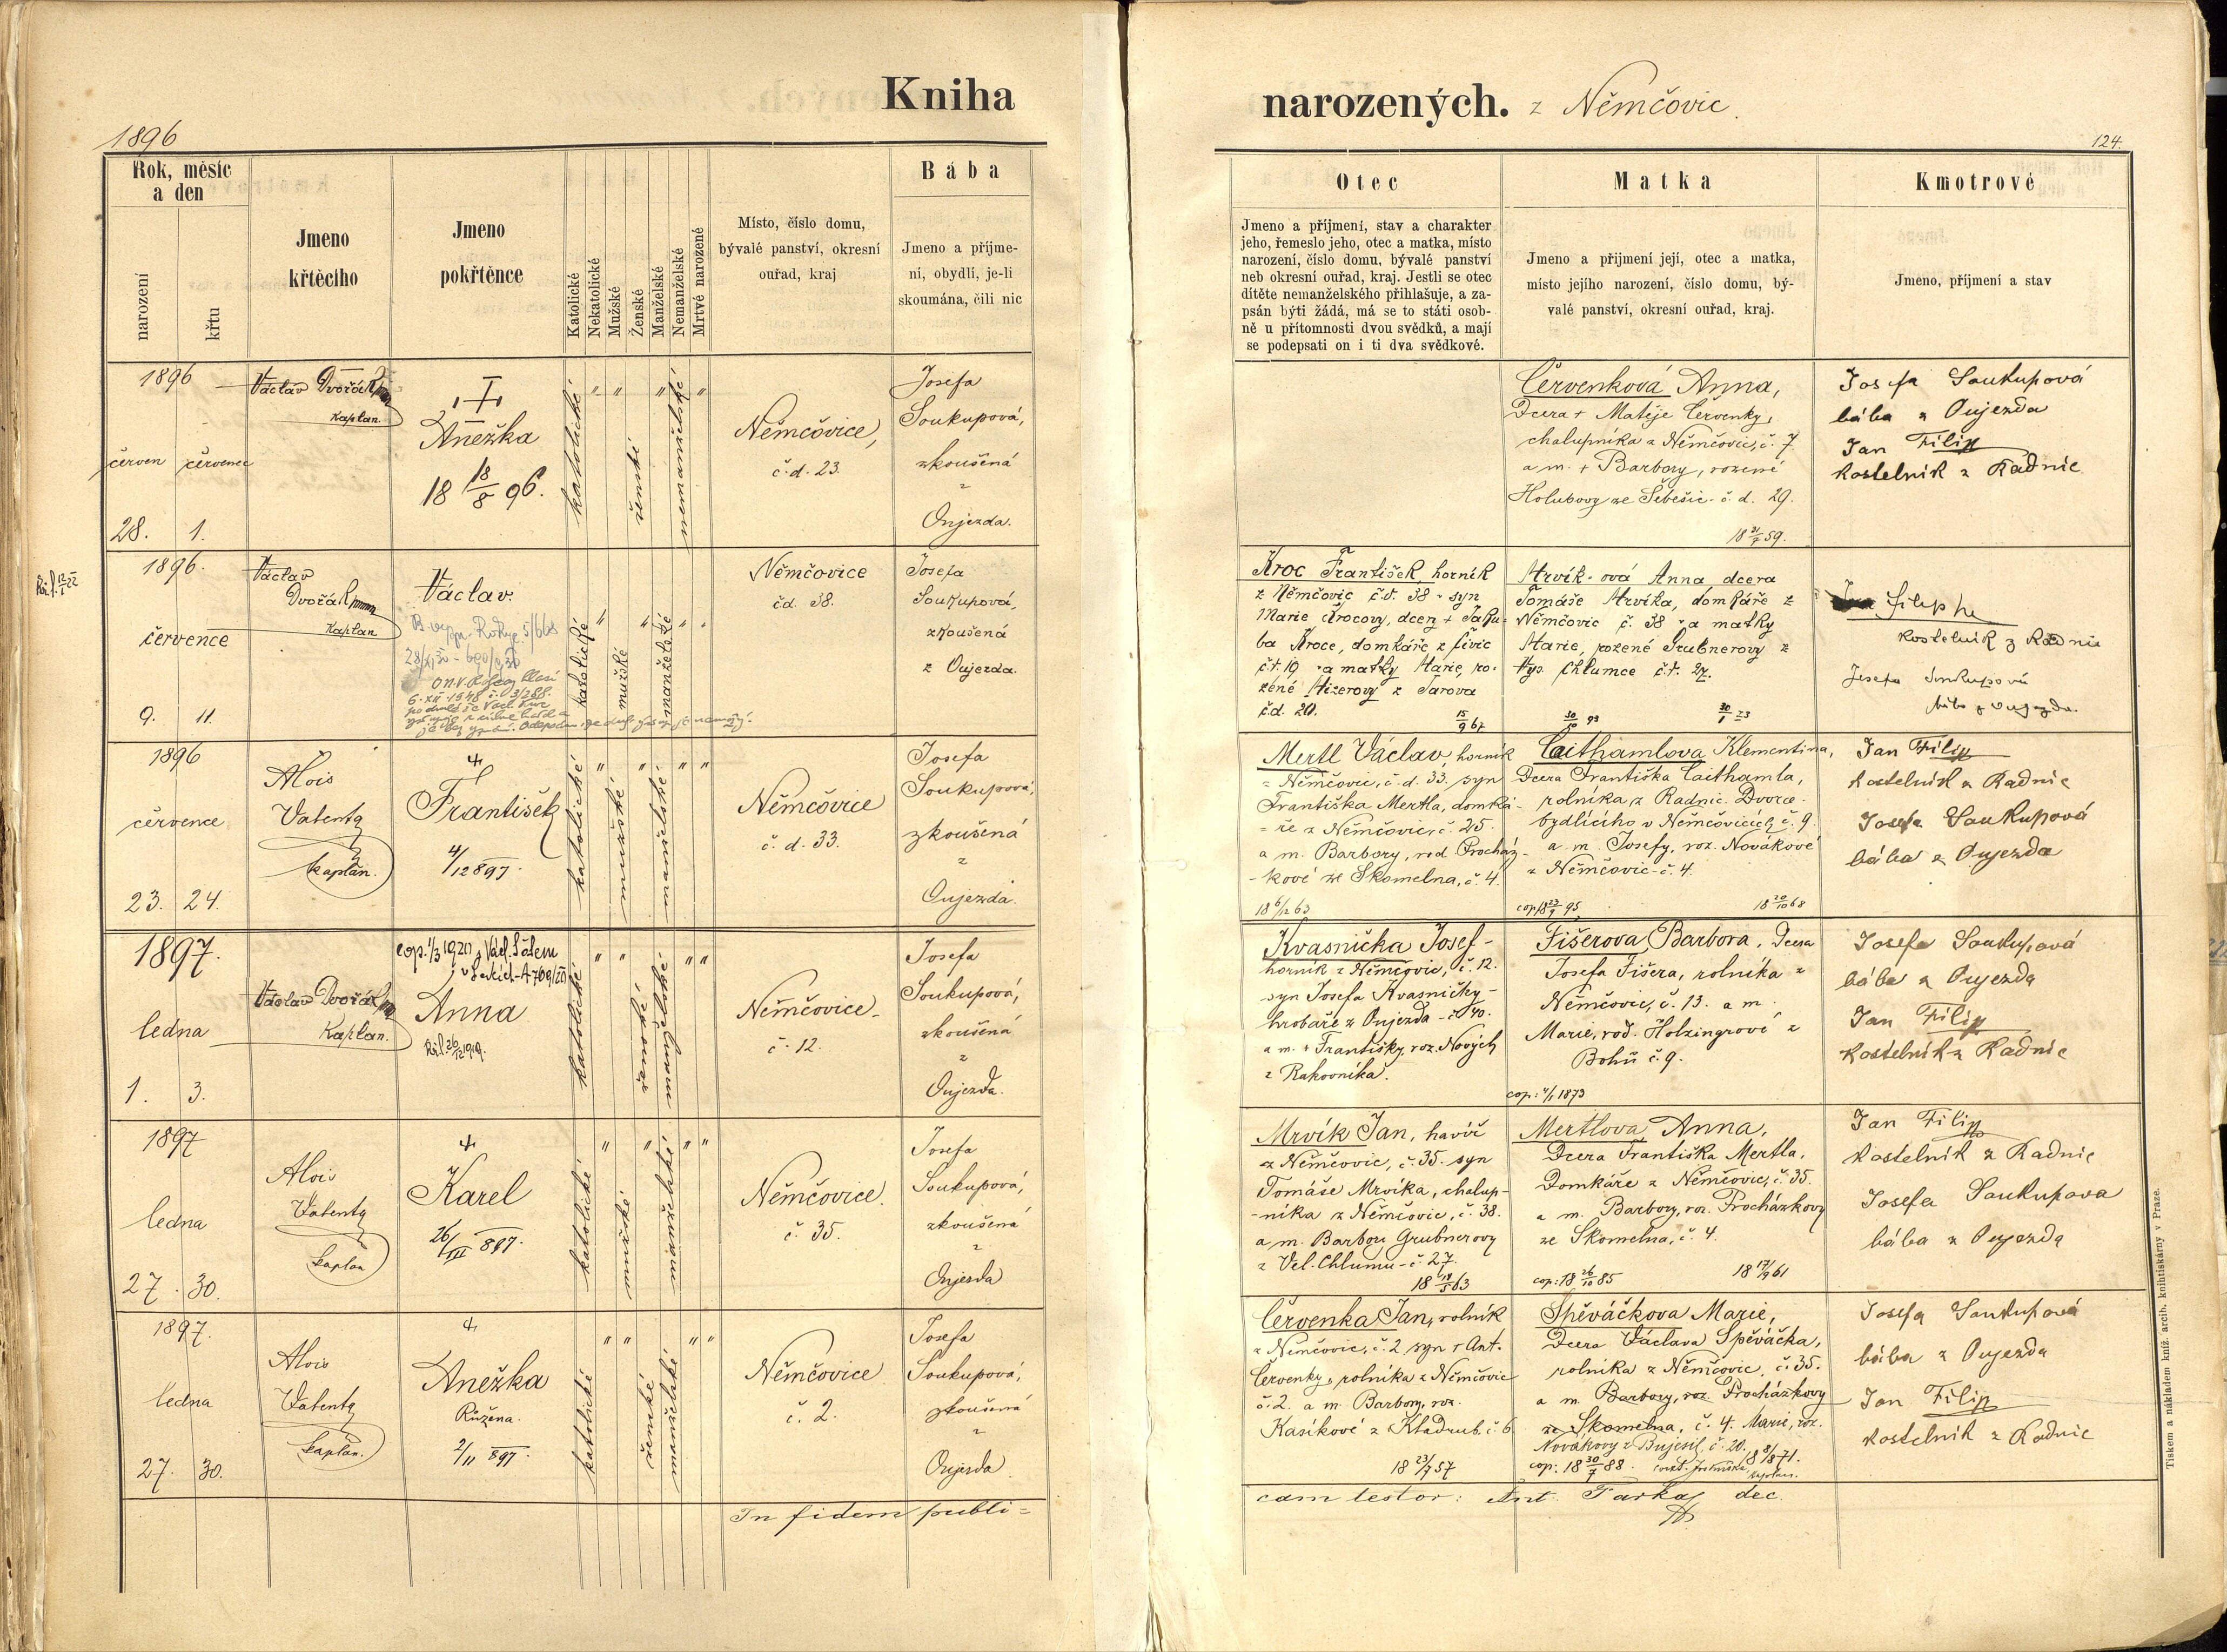 Kniha
narozených. z Němčovic.
1896
124.
Rok, měsíc
a den
narození
křtu
Jmeno
křtěcího
Jmeno
pokřtěnce
Katolické
Nekatolické
Mužské
Ženské
Manželské
Nemanželské
Mrtvě narozené
Místo, číslo domu,
bývalé panství, okresní
ouřad, kraj
Bába
Jmeno a příjme-
ní, obydlí, je-li
skoumána, čili nic
Otec
Jmeno a příjmení, stav a charakter
jeho, řemeslo jeho, otec a matka, místo
narození, číslo domu, bývalé panství
neb okresní ouřad, kraj. Jestli se otec
dítěte nemanželského přihlašuje, a za-
psán býti žádá, má se to státi osob-
ně u přítomnosti dvou svědků, a mají
se podepsati on i ti dva svědkové.
Matka
Jmeno a přijmení její, otec a matka,
místo jejího narození, číslo domu, bý-
valé panství, okresní ouřad, kraj.
Kmotrové
Jmeno, příjmení a stav
1896
červen červenec
28. 1.
Václav Dvořák
Kaplan.
Anežka
18 18/8 96.
katolické
ženské
nemanželské
Němčovice,
č. d. 23.
Josefa
Soukupová,
zkoušená
z
Oujezda.
Červenková Anna,
Dcera + Matěje Červenky,
chalupníka z Němčovic, č. 7.
a m. + Barbory, rozené
Holubovy ze Šebešic č. d. 29.
18 31/7 59.
Josefa Soukupová
bába z Oujezda
Jan Filip
kostelník z Radnic
1896.
července
9. 11.
Václav
Dvořák
Kaplan
Václav.
katolické
mužské
manželské
Němčovice
čd. 38.
Josefa
Soukupová,
zkoušená
z Oujezda.
Kroc František, horník
z Němčovic č.d. 38 syn
Marie Krocovy, dcery + Jaku-
ba Kroce, domkáře z Livic
č. 19, a matky Marie, ro-
zené Mizerovy z Darova
č.d. 20.
15/9 67
Mrvík-ová Anna dcera
Tomáše Mrvíka, domkáře z
Němčovic č. 38 a matky
Marie, rozené Grubnerovy z
Chlumce č. 27.
30/10 93
Filip
kostelník z Radnic
Josefa Soukupová
bába z Oujezda.
1896
července
23. 24.
Alois
Valenta
kaplan.
František
4/12 897.
katolické
mužské
manželské
Němčovice
č. d. 33.
Josefa
Soukupová,
zkoušená
z
Oujezda.
Mertl Václav, horník
z Němčovic, č. d. 33. syn
Františka Mertla, domká-
ře z Němčovic, č. 25.
a m. Barbory, rod. Procház-
kové ze Skomelna, č. 4.
18 6/12 63
Caithamlova Klementina,
Dcera Františka Caithamla,
rolníka z Radnic. Dvorce
bydlícího v Němčovicích č. 9.
a m. Josefy, roz. Novákové
z Němčovic č. 4.
cop. 18 23/9 95
18 20/10 68
Jan Filip
kostelník z Radnic
Josefa Soukupová
bába z Oujezda
1897.
ledna
1. 3.
Václav Dvořák
Kaplan.
Anna
katolické
ženské
manželské
Němčovice
č. 12.
Josefa
Soukupová,
zkoušená
z
Oujezda.
Kvasnička Josef
horník z Němčovic, č. 12.
syn Josefa Kvasničky
hrobaře z Oujezda č. 40.
a m. + Františky, roz. Nových
z Rakovníka.
Fišerova Barbora, Dcera
Josefa Fišera, rolníka z
Němčovic, č. 13. a m.
Marie, rod. Holzingrové z
Bohů č. 9.
Josefa Soukupová
bába z Oujezda
Jan Filip
kostelník z Radnic
1897
ledna
27. 30.
Alois
Valenta
kaplan
Karel
26/III 897.
katolické
mužské
manželské
Němčovice.
č. 35.
Josefa
Soukupová,
zkoušená
z
Oujezda
Mrvík Jan, havíř
z Němčovic, č. 35. syn
Tomáše Mrvíka, chalup-
níka z Němčovic, č. 38.
a m. Barbory Grubnerovy
z Vel. Chlumu č. 27.
Mertlova Anna,
Dcera Františka Mertla,
Domkáře z Němčovic, č. 35.
a m. Barbory, roz. Procházkovy
ze Skomelna, č. 4.
cop: 18 26/10 85
18 17/9 61
Jan Filip
kostelník z Radnic
Josefa Soukupova
bába z Oujezda
1897.
ledna
27. 30.
Alois
Valenta
kaplan.
Anežka
Růžena.
2/11 897.
katolické
ženské
manželské
Němčovice
č. 2.
Josefa
Soukupová,
zkoušená
z
Oujezda.
Červenka Jan, rolník
z Němčovic, č. 2 syn + Ant.
Červenky, rolníka z Němčovic
č. 2. a m. Barbory, roz.
Kasíkové z Kladrub č. 6
18 23/7 57
Spěváčkova Marie,
Dcera Václava Spěváčka,
rolníka z Němčovic, č. 35.
a m. Barbory, roz. Procházkovy
ze Skomelna, č. 4. Marie, roz.
Novákovy z Bujesil, č. 20.
cop: 18 30/7 88.
18 8/8 71.
Josefa Soukupová
bába z Oujezda
Jan Filip
kostelník z Radnic
In fidem publi=
cam testor: Ant. dec.
Tiskem a nákladem kníž. arcib. knihtiskárny v Praze.